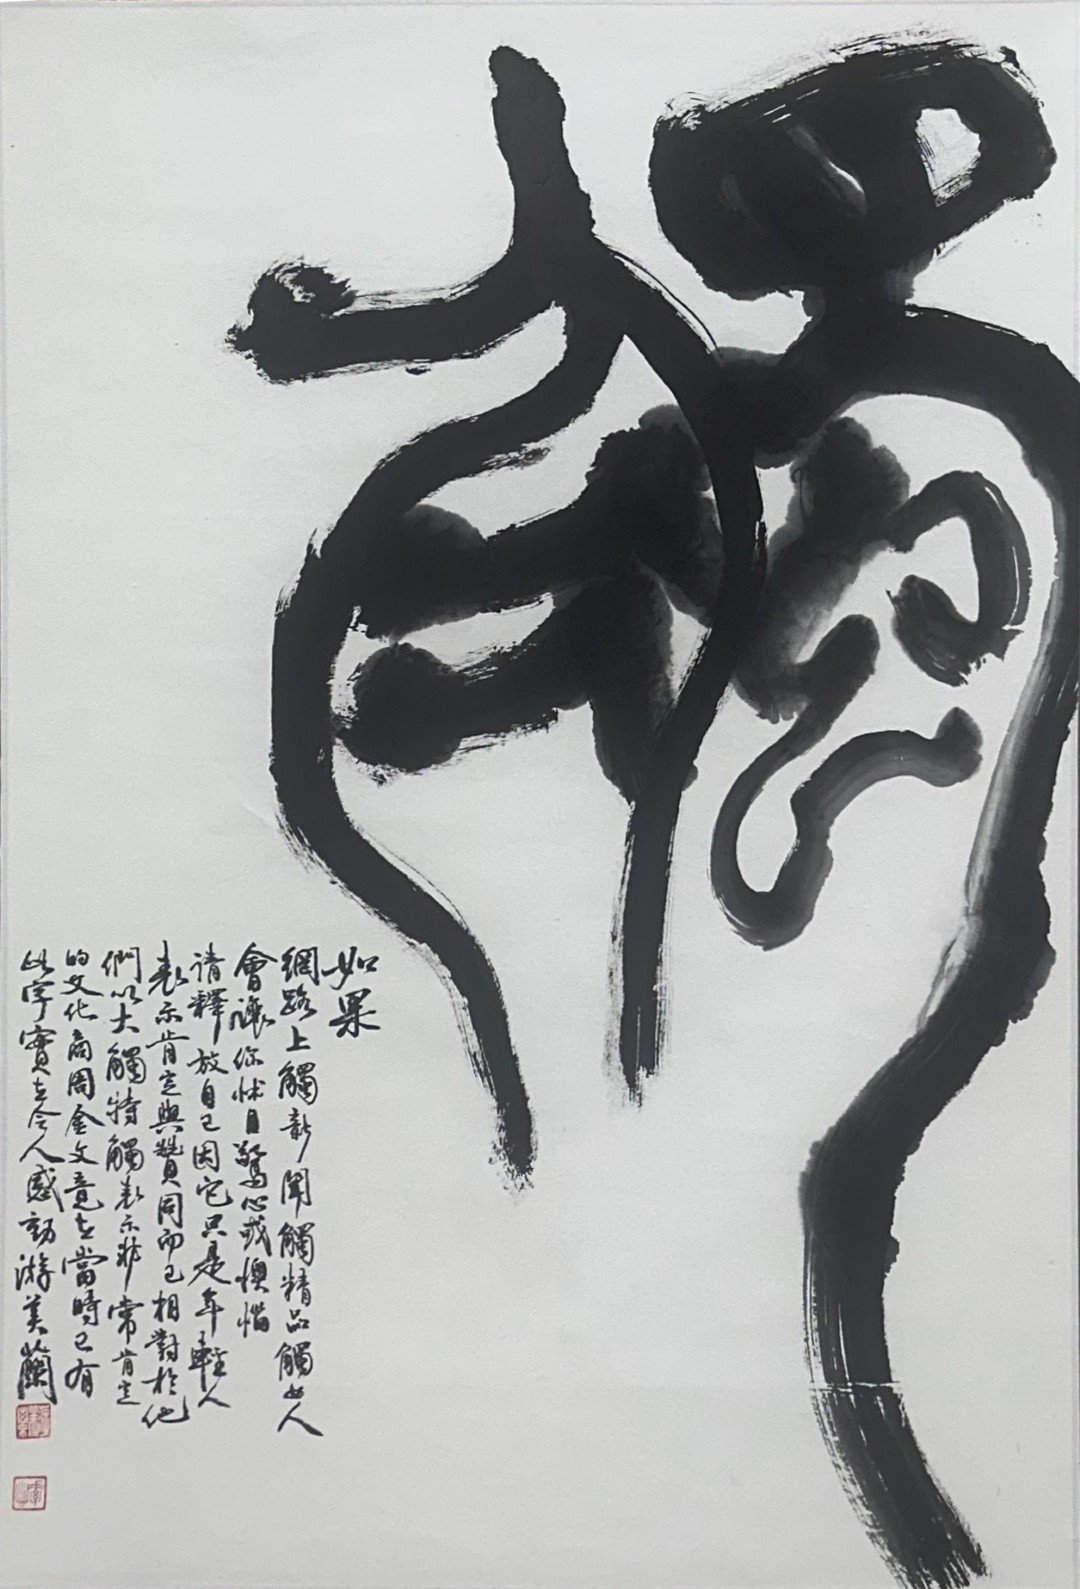 觸
如果
網路上觸新聞觸精品觸女人
會讓你怵目驚心或懊惱
請釋放自己因它只是年輕人
表示肯定與贊同而已相對於他
們以大觸特觸表示非常肯定
的文化商周金文竟在當時已有
此字實在令人感動游美蘭